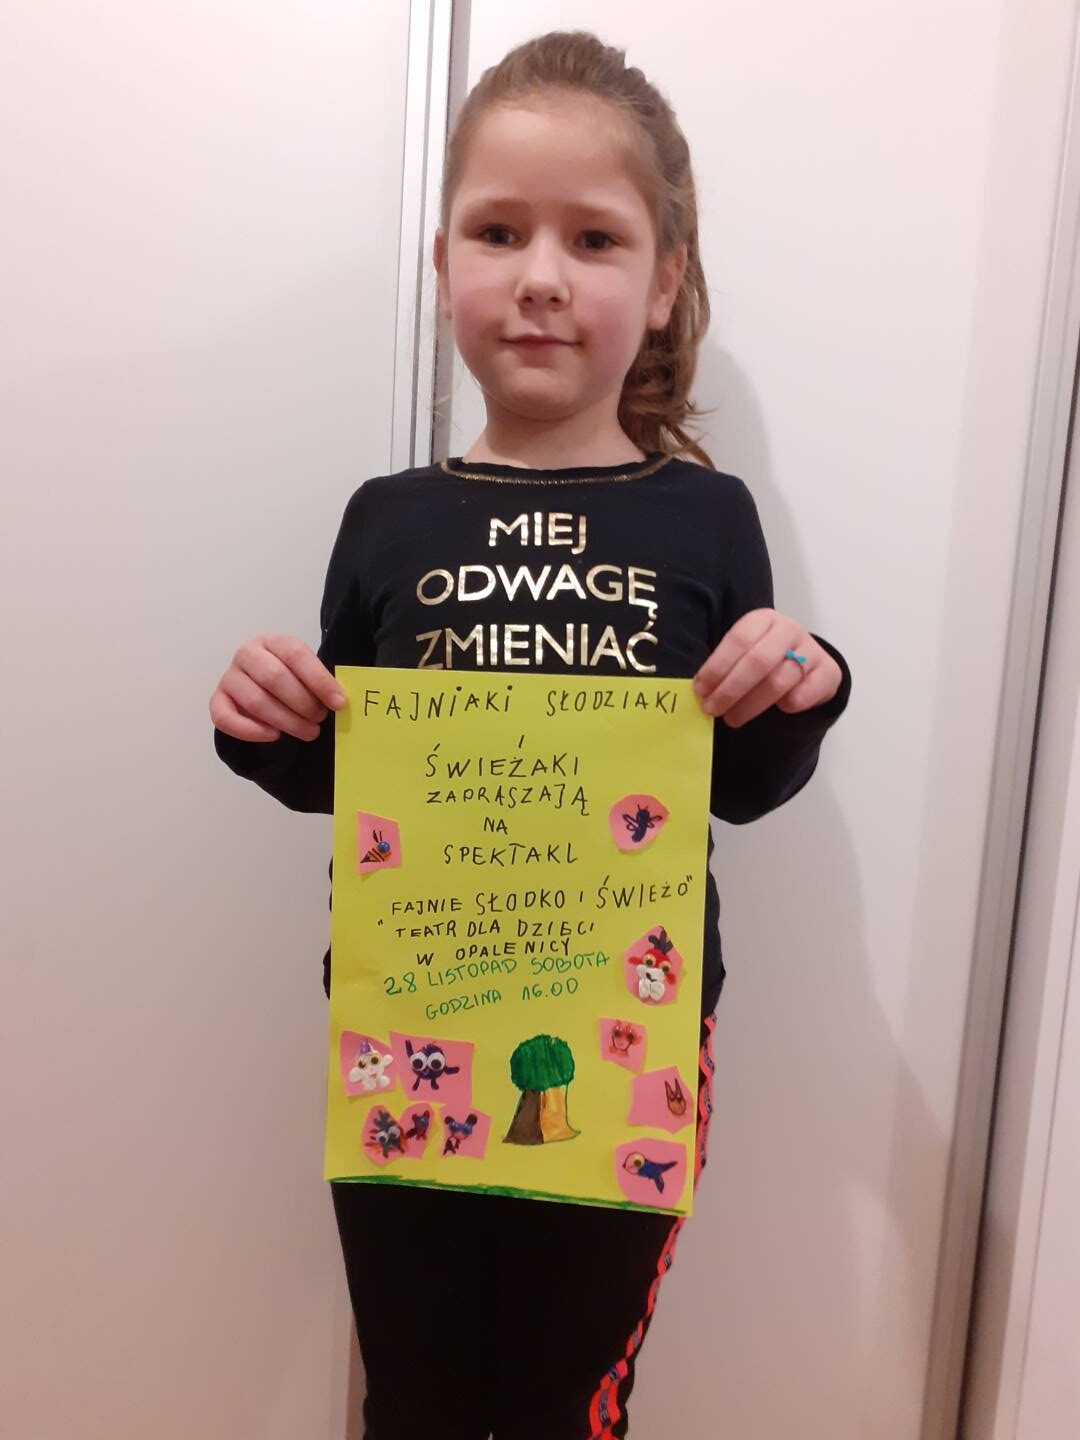 MIEJ
ODWAGĘ
ZMIENIAĆ
FAJNIAKI SŁODZIAKI
I
ŚWIEŻAKI
ZAPRASZAJĄ
NA
SPEKTAKL
FAJNIE SŁODKO I ŚWIEŻO"
"TEATR DLA DZIECI
W OPALENICY
28 LISTOPAD SOBOTA
GODZINA 16.00